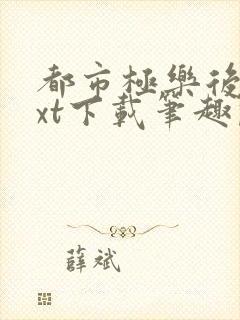 都市極樂後
xt下載筆趣
薛斌